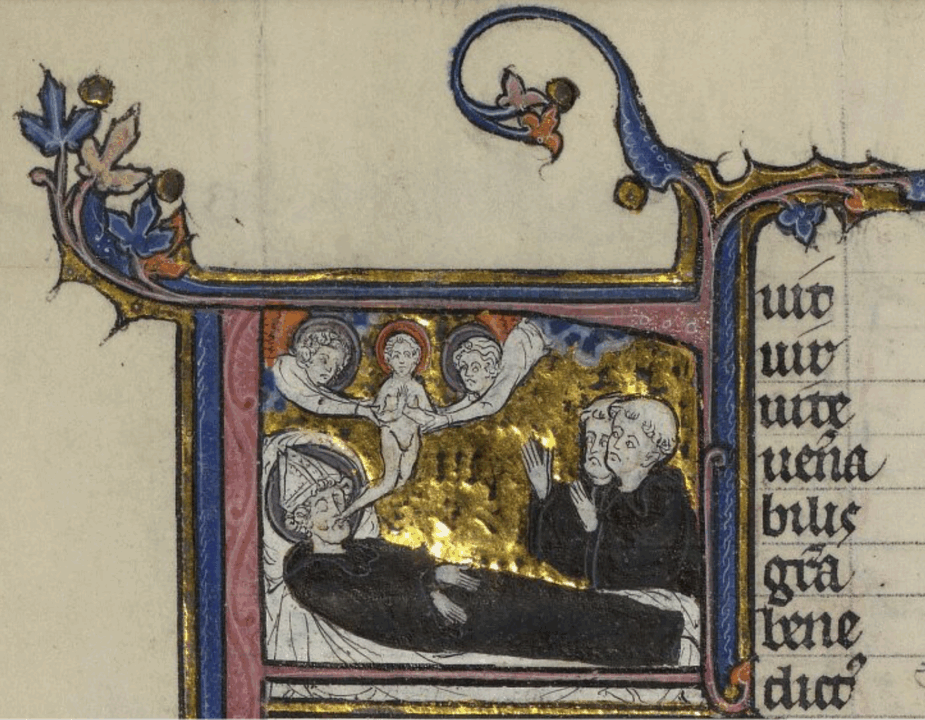 uit
uir
uite
uen̄a
bilis
gr̄a
bene
dictꝰ